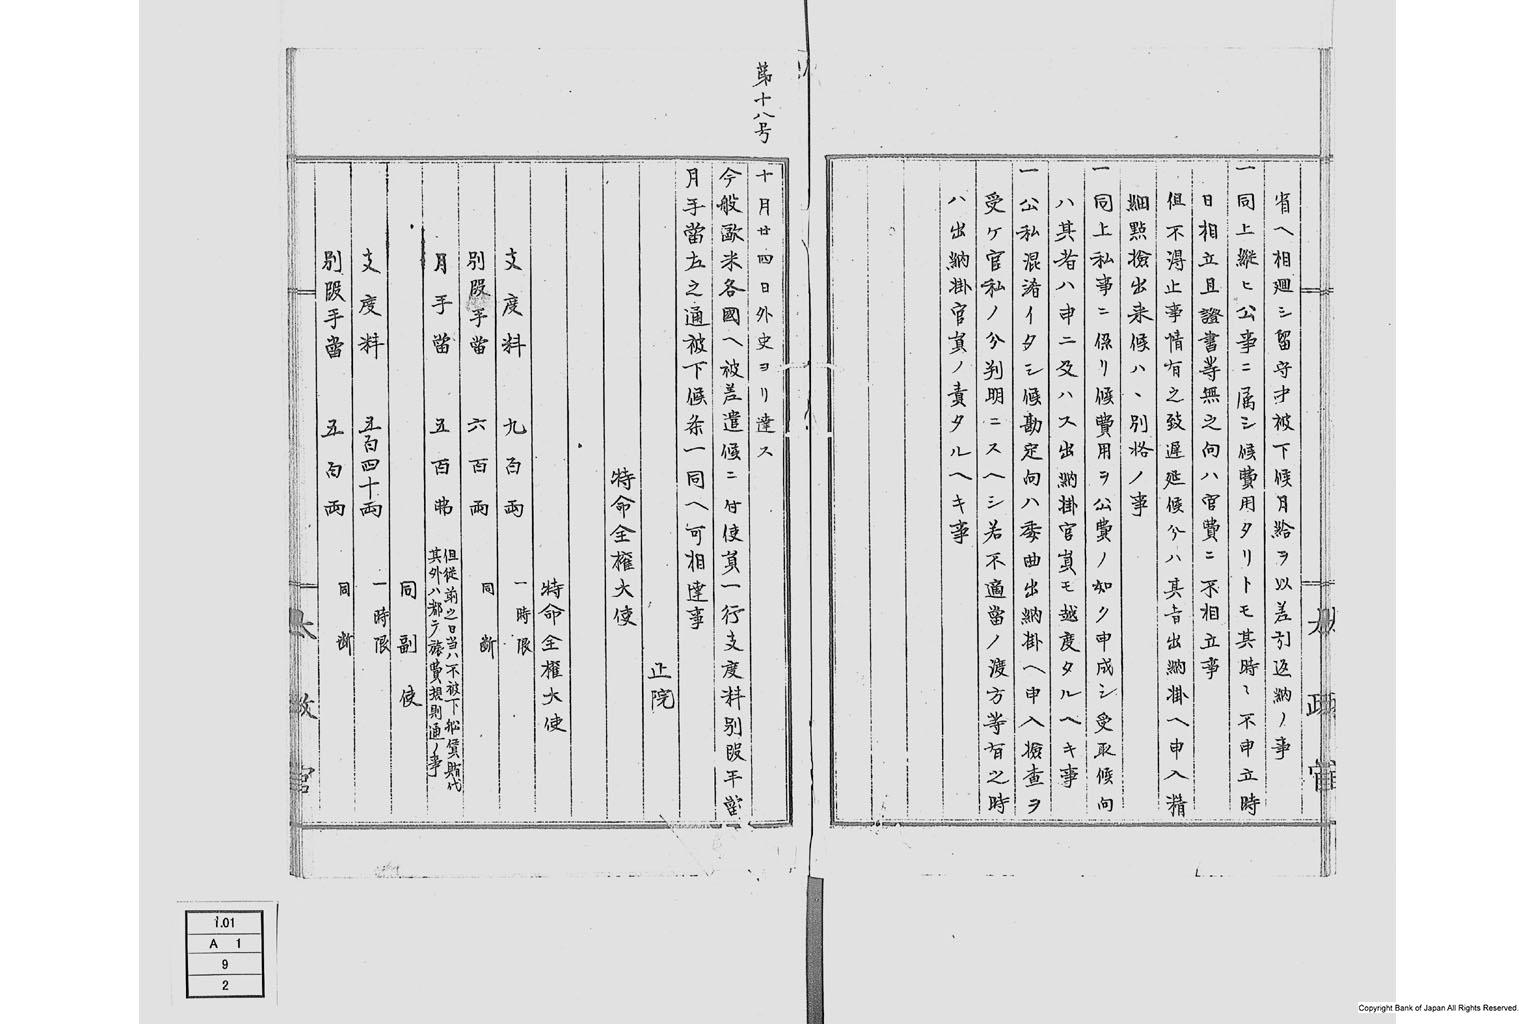 省ヘ相廻シ留守中被下候月給ヲ以差引返納ノ事
一同上縦ヒ公事ニ属シ候費用タリトモ其時〻不申立時
日相立且證書等無之向ハ官費ニ不相立事
但不得止事情有之致遅延候分ハ其旨出納掛ヘ申入精
細點撿出来候ハヽ別格ノ事
一同上私事ニ係リ候費用ヲ公費ノ如ク申成シ受取候向
ハ其者ハ申ニ及ハス出納掛官員モ越度タルヘキ事
一公私混淆イタシ候勘定向ハ委曲出納掛ヘ申入撿査ヲ
受ケ官私ノ分判明ニスヘシ若不適當ノ渡方等有之時
ハ出納掛官員ノ責タルヘキ事
太政官
第十八号
十月廿四日外史ヨリ達ス
今般歐米各國ヘ被差遣候ニ付使員一行支度料別段手當
月手當左之通被下候条一同ヘ可相達事
正院
特命全權大使
特命全權大使
支度料 九百両 一時限
別段手當 六百両 同断
月手當 五百弗 但従前之日当ハ不被下船賃賄代
其外ハ都テ旅費規則通ノ事
同副使
支度料 五百四十両 一時限
別段手當 五百両 同断
太政官
1.01
A 1
9
2
Copyright Bank of Japan All Rights Reserved.